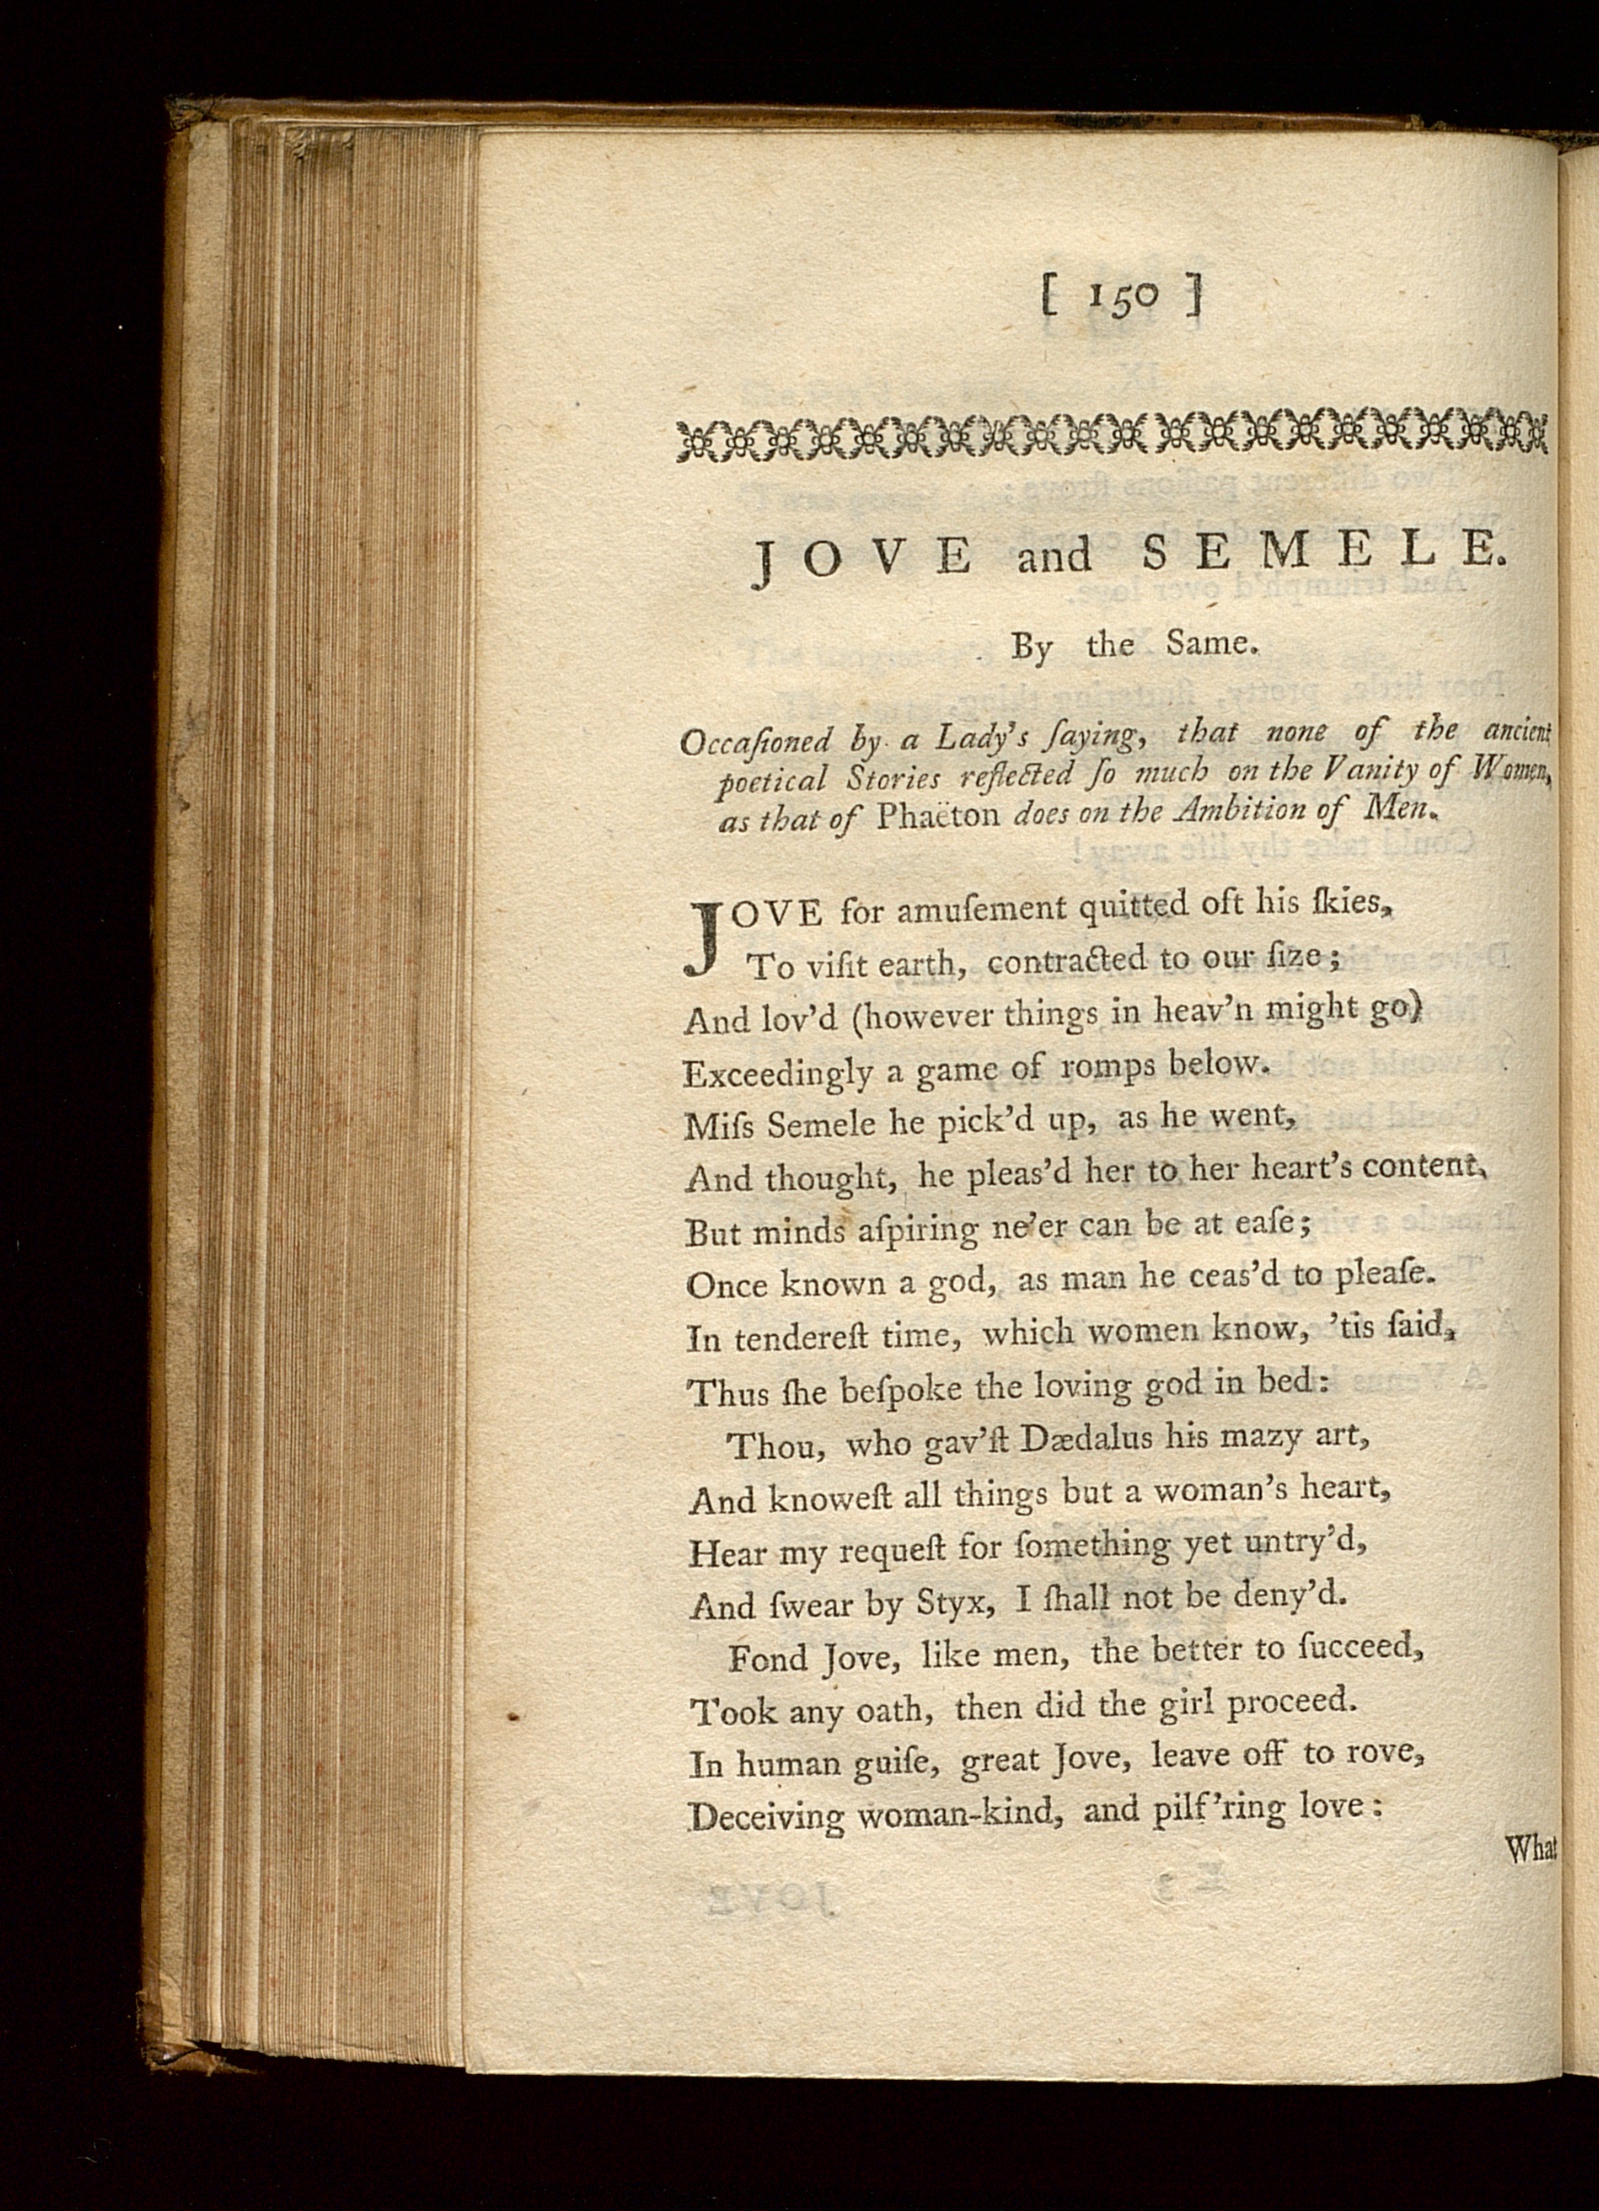 [ 150 ]
JOVE and SEMELE.
By the Same.
Occaſioned by a Lady's ſaying, that none of the ancient
poetical Stories reflected ſo much on the Vanity of Women,
as that of Phaëton does on the Ambition of Men.
JOVE for amuſement quitted oft his ſkies,
To viſit earth, contracted to our ſize;
And lov'd (however things in heav'n might go)
Exceedingly a game of romps below.
Miſs Semele he pick'd up, as he went,
And thought, he pleas'd her to her heart's content,
But minds aſpiring ne'er can be at eaſe;
Once known a god, as man he ceas'd to pleaſe.
In tendereſt time, which women know, 'tis ſaid,
Thus ſhe beſpoke the loving god in bed:
Thou, who gav'ſt Dædalus his mazy art,
And knoweſt all things but a woman's heart,
Hear my requeſt for ſomething yet untry'd,
And ſwear by Styx, I ſhall not be deny'd.
Fond Jove, like men, the better to ſucceed,
Took any oath, then did the girl proceed.
In human guiſe, great Jove, leave off to rove,
Deceiving woman-kind, and pilf'ring love:
What